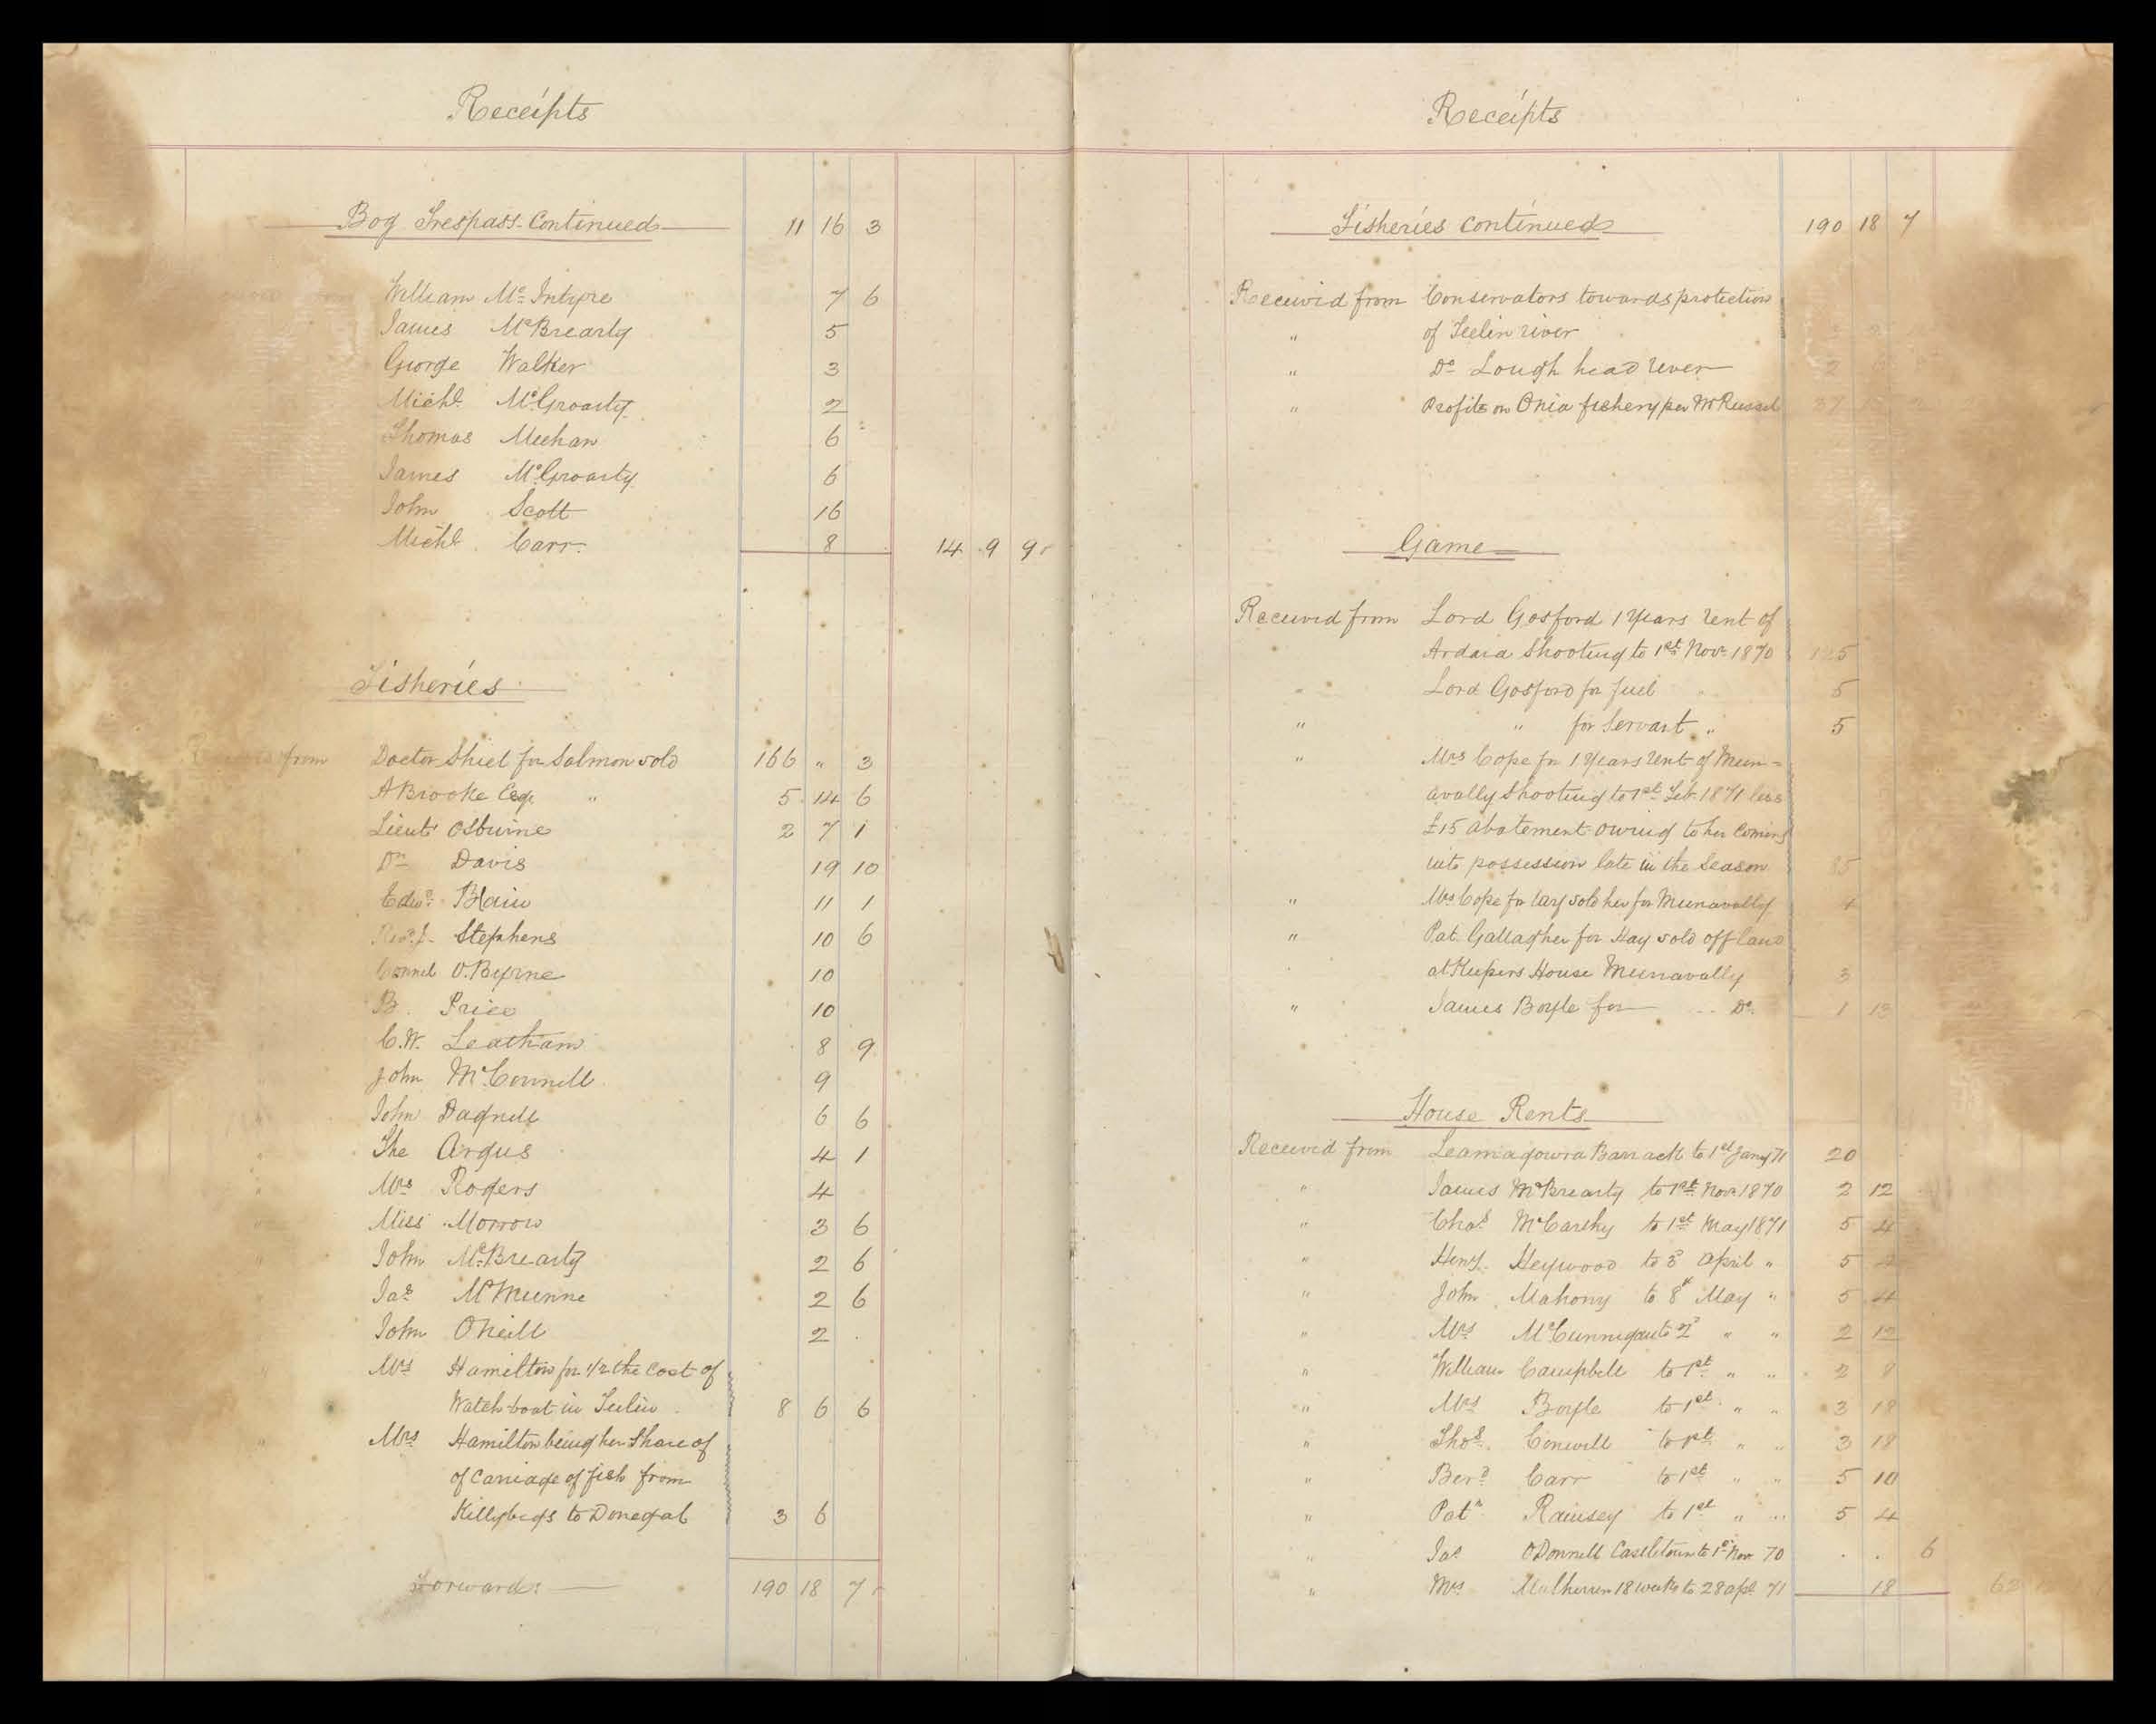 Receipts
Bog Trespass Continued 11 16 3
William McIntyre 7 6
James McBrearty 5
George Walker 3
Michl. McGroarty 2
Thomas Meehan 6
James McGroarty 6
John Scott 16
Michl. Carr 8 14 9 9
Fisheries
from Doctor Shiel for Salmon sold 166 " 3
A Brooke Esqr. " 5 14 6
Lieut Osburne 2 7 1
Dr Davis 19 10
Edwd. Blain 11 1
Stephens 10 6
Connel O.Byrne 10
B. Price 10
C.W. Leatham 8 9
John McConnell 9
John Dagnell 6 6
The Argus 4 1
Mrs Rogers 4
Miss Morrow 3 6
John McBrearty 2 6
Jas McMunne 2 6
John ONeill 2
Mrs Hamilton for 1/2 the Cost of
Watch-boat in Teelin 8 6 6
Mrs Hamilton being her Share of
of Carriage of fish from
Killybegs to Donegal 3 6
Forward: 190 18 7
Receipts
Fisheries continued 190 18 7
Received from Conservators towards protection
" of Teelin river
" Do Lough head river 2
" Profits on Onia fishery per Mr Russel 37
Game
Received from Lord Gosford 1 Years rent of
Ardara Shooting to 1st Nov. 1870 125
Lord Gosford for fuel 5
" " for Servant " 5
" Mrs Cope for 1 Years rent of Mun=
avally Shooting to 1st Feb 1871 less
£15 abatement owing to her Coming
into possession late in the Season 85
" Mrs Cope for sold her for Munavally
" Pat Gallagher for Hay sold off land
at Keepers House Munavally 3
" James Boyle for Do. 1 13
House Rents
Received from Leamagowra Barrack to 1st Jany 71 20
" James McBrearty to 1st Novr 1870 2 12
" Chas McCarthy to 1st May 1871 5 4
" Heny. Heywood to 3d April " 5
" John Mahony to 8th May " 5 4
" Mrs McCunnigan to 2d " " 2 12
" William Campbell to 1st " " 2 8
" Mrs Boyle to 1st " " 3 18
" Thos. Conwell to 1st " " 3 18
" Berd Carr to 1st " " 5 10
" Patk Ramsey to 1st " " 5 4
" Jas ODonnell Castletown to 1st Nov 70 6
" Mrs Mulherrin 18 weeks to 28 apl 71 18